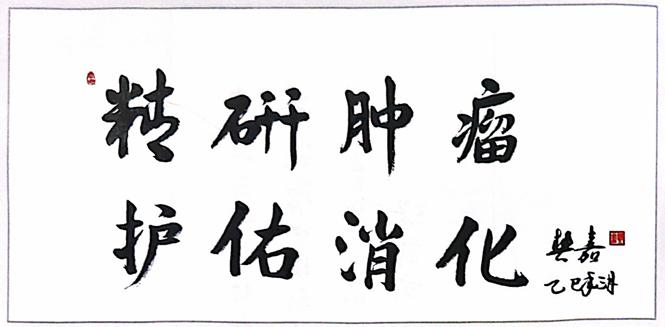 精研肿瘤
护佑消化
樊嘉
乙巳年